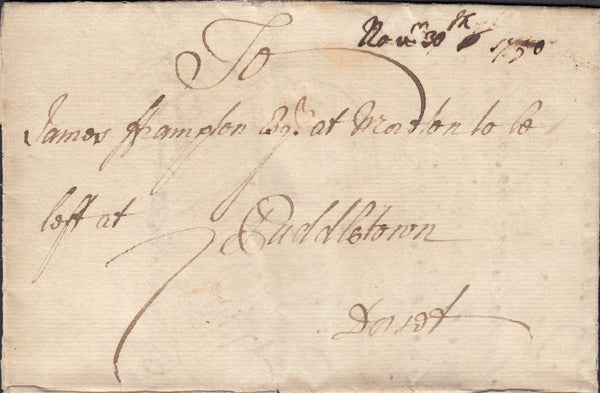 Nov.m 30th 1750
To
James fframpton Esqr. at Moreton to be
left at Puddletown
Dorset